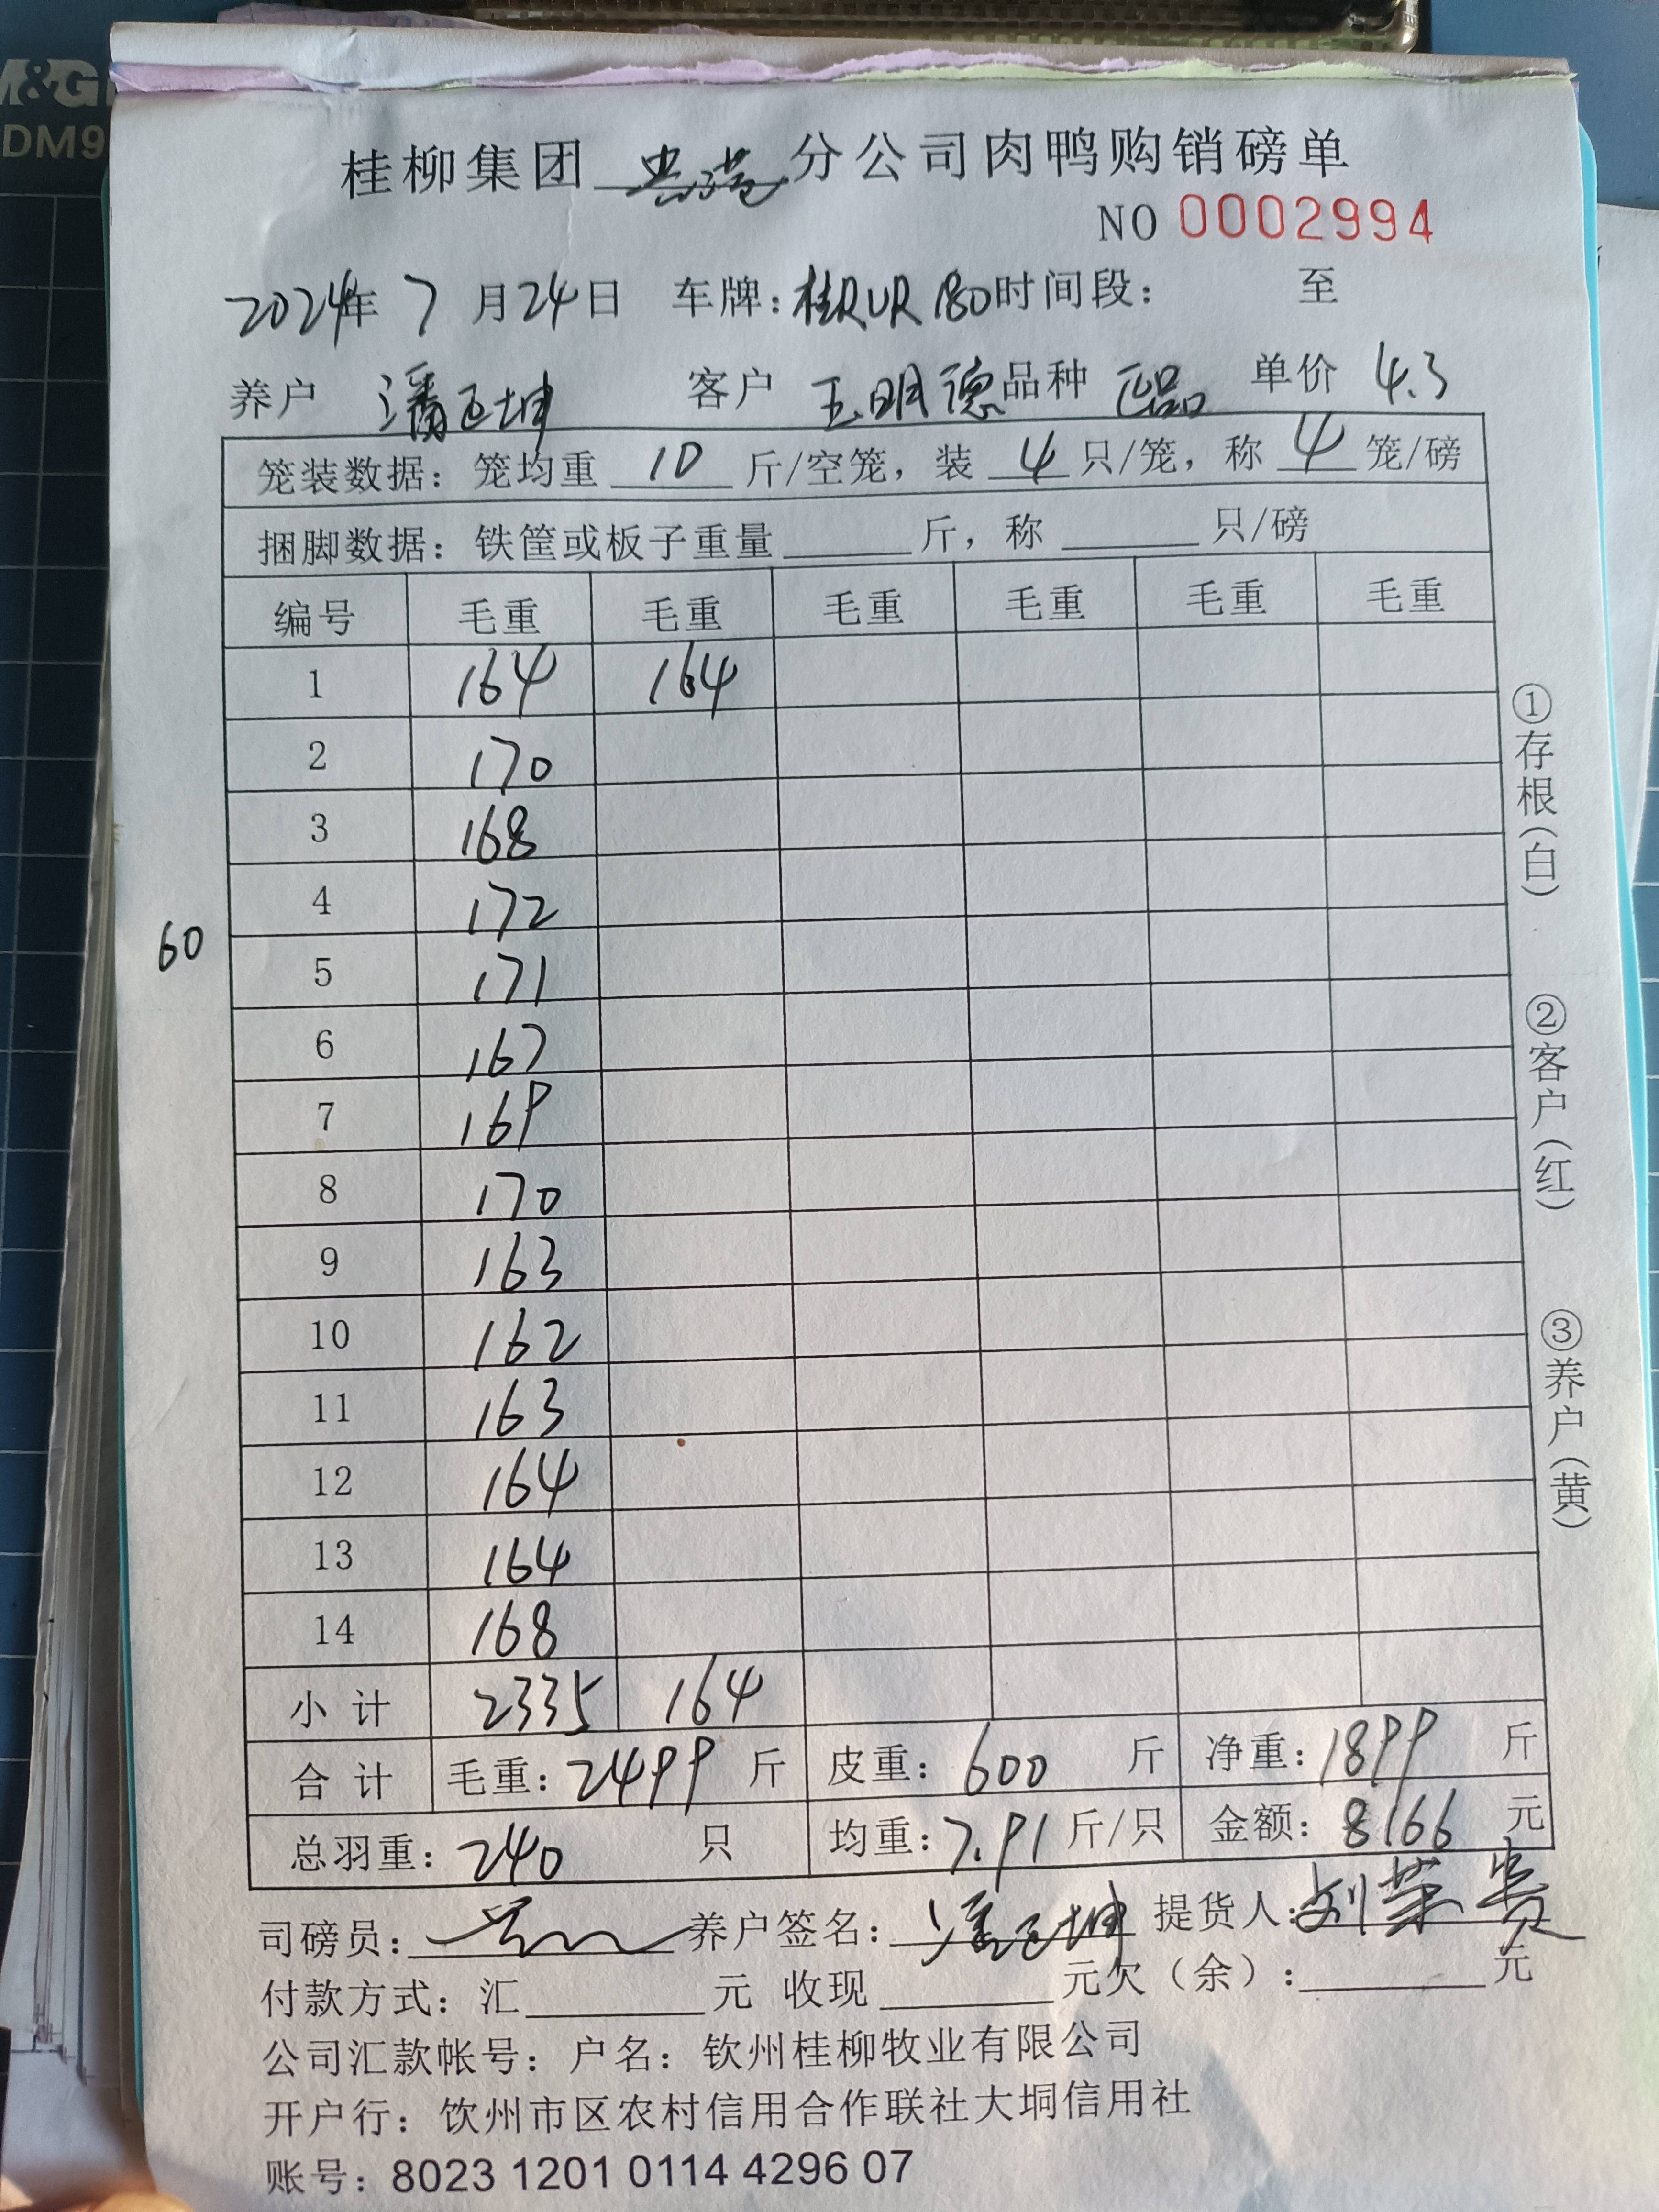 M&G
DM9
桂柳集团 贵港 分公司肉鸭购销磅单
NO 0002994
2024年 7 月24日 车牌:桂RUR180时间段: 至
养户 潘 坤 客户 王明德 品种 正品 单价 4.3
笼装数据:笼均重 10 斤/空笼,装 4 只/笼,称 4 笼/磅
捆脚数据:铁筐或板子重量 斤,称 只/磅
编号 毛重 毛重 毛重 毛重 毛重 毛重
1 164 164
2 170
3 168
4 172
60
5 171
6 167
7 169
8 170
9 163
10 162
11 163
12 164
13 164
14 168
小计 2335 164
合计 毛重:2499 斤 皮重:600 斤 净重:1899 斤
总羽重:240 只 均重:7.91 斤/只 金额:8166 元
司磅员: 养户签名:潘 坤 提货人:刘荣贵
付款方式:汇 元 收现 元欠(余): 元
公司汇款帐号:户名:钦州桂柳牧业有限公司
开户行:钦州市区农村信用合作联社大垌信用社
账号:8023 1201 0114 4296 07
①存根(白)
②客户(红)
③养户(黄)